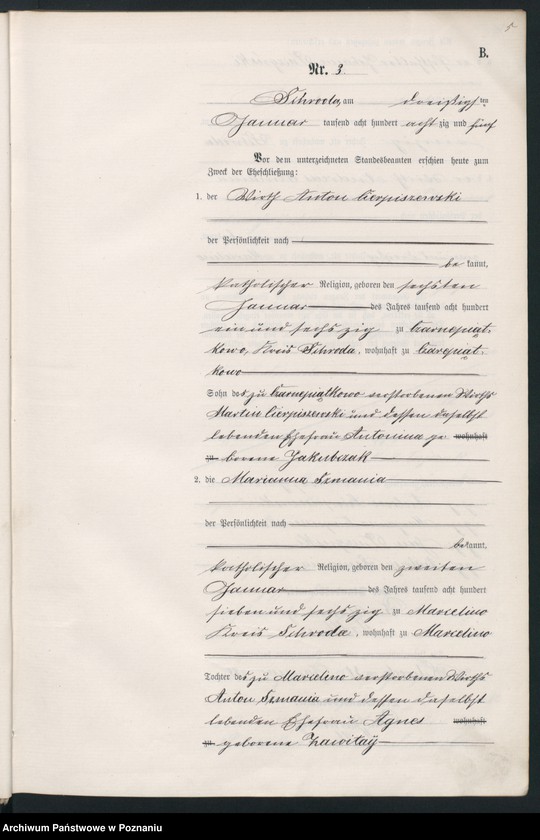 5
B.
Nr. 3.
Schroda, am dreißigsten
Januar tausend acht hundert achtzig und fünf
Vor dem unterzeichneten Standesbeamten erschien heute zum
Zweck der Eheschließung:
1. der Wirth Anton Cierpiszewski
der Persönlichkeit nach
be kannt,
katholischer Religion, geboren den sechsten
Januar des Jahres tausend acht hundert
ein und sechs zig zu Czarnepiąt-
kowo, Kreis Schroda, wohnhaft zu Czarnepiąt-
kowo
Sohn des zu Czarnepiątkowo verstorbenen Wirths
Martin Cierpiszewski und dessen daselbst
lebenden Ehefrau Antonina ge wohnhaft
zu borene Jakubczak
2. die Marianna Szmania
der Persönlichkeit nach
bekannt,
katholischer Religion, geboren den zweiten
Januar des Jahres tausend acht hundert
sieben und sechs zig zu Marcelino
Kreis Schroda, wohnhaft zu Marcelino
Tochter des zu Marcelino verstorbenen Wirths
Anton Szmania und dessen daselbst
lebenden Ehefrau Agnes wohnhaft
zu geborene Zawitaÿ
Archiwum Państwowe w Poznaniu